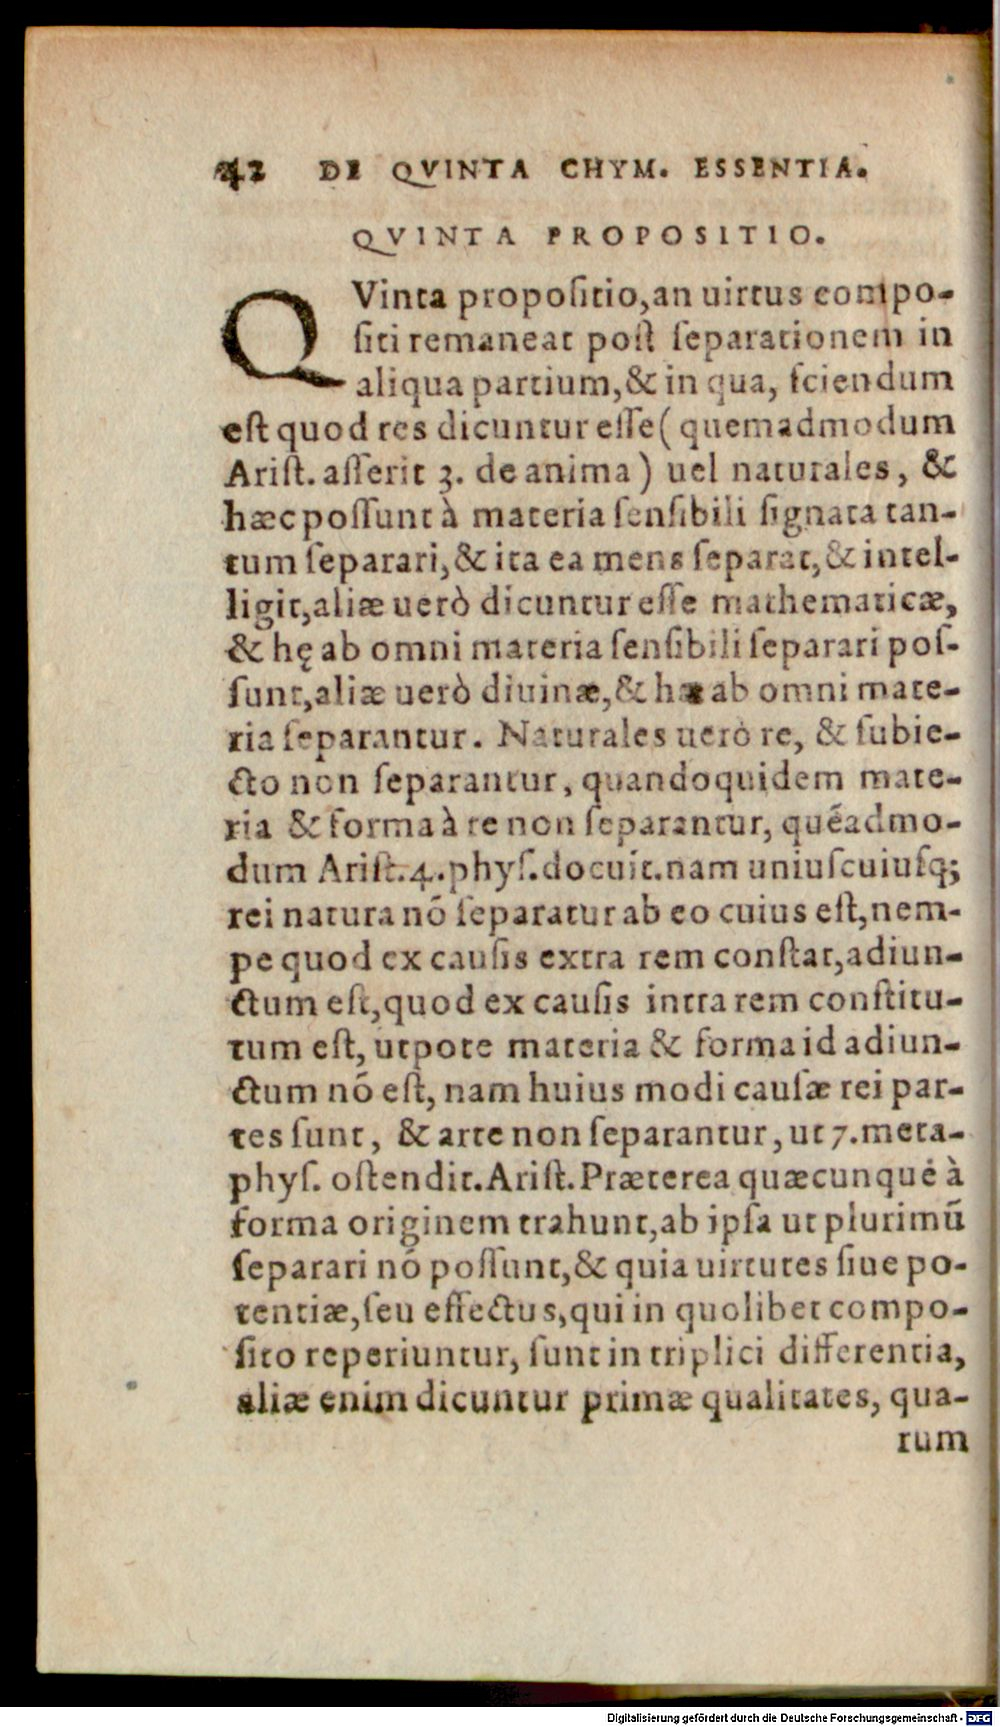 42 DE QVINTA CHYM. ESSENTIA.
QVINTA PROPOSITIO.
QVinta propositio,an uirtus compo-
siti remaneat post separationem in
aliqua partium,& in qua, sciendum
est quod res dicuntur esse ( quemadmodum
Arist. asserit 3. de anima ) uel naturales, &
hæc possunt à materia sensibili signata tan-
tum separari,& ita ea mens separat,& intel-
ligit,aliæ uerò dicuntur esse mathematicæ,
& hę ab omni materia sensibili separari pos-
sunt,aliæ uerò diuinæ,& hæ ab omni mate-
ria separantur. Naturales uerò re, & subie-
cto non separantur, quandoquidem mate-
ria & forma à re non separantur, quẽadmo-
dum Arist.4.phys.docuit.nam uniuscuiusq;
rei natura nõ separatur ab eo cuius est,nem-
pe quod ex causis extra rem constat,adiun-
ctum est,quod ex causis intra rem constitu-
tum est, utpote materia & forma id adiun-
ctum nõ est, nam huius modi causæ rei par-
tes sunt, & arte non separantur, ut 7.meta-
phys. ostendit.Arist.Præterea quæcunqué à
forma originem trahunt,ab ipsa ut plurimũ
separari nõ possunt,& quia uirtutes siue po-
tentiæ,seu effectus,qui in quolibet compo-
sito reperiuntur, sunt in triplici differentia,
aliæ enim dicuntur primæ qualitates, qua-
rum
Digitalisierung gefördert durch die Deutsche Forschungsgemeinschaft - DFG